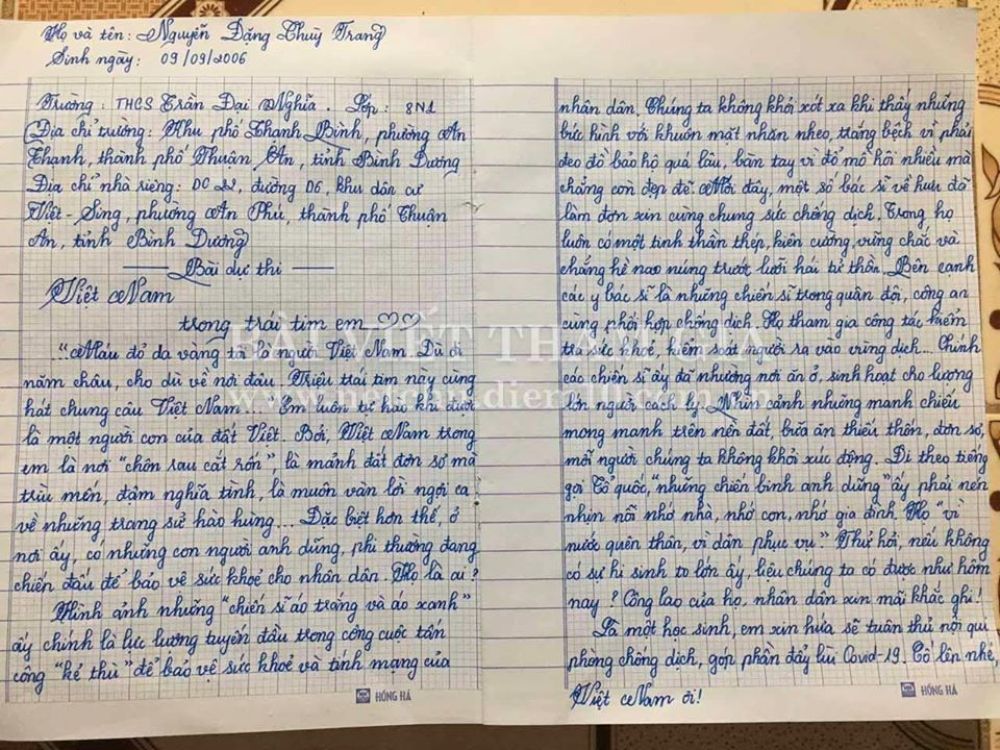 Họ và tên: Nguyễn Đặng Thuỳ Trang
Sinh ngày: 09/09/2006
Trường: THCS Trần Đại Nghĩa. Lớp: 8N1
Địa chỉ trường: Khu phố Thanh Bình, phường An
Thạnh, thành phố Thuận An, tỉnh Bình Dương
Địa chỉ nhà riêng: DC 22, đường D6, khu dân cư
Việt-Sing, phường An Phú, thành phố Thuận
An, tỉnh Bình Dương
Bài dự thi
Việt Nam
trong trái tim em
"...Máu đỏ da vàng ta là người Việt Nam. Dù đi
năm châu, cho dù về nơi đâu. Triệu trái tim này cùng
hát chung câu Việt Nam..." Em luôn tự hào khi được
là một người con của đất Việt. Bởi, Việt Nam trong
em là nơi "chôn rau cắt rốn", là mảnh đất đơn sơ mà
trìu mến, đậm nghĩa tình, là muôn vàn lời ngợi ca
về những trang sử hào hùng... Đặc biệt hơn thế, ở
nơi ấy, có những con người anh dũng, phi thường đang
chiến đấu để bảo vệ sức khoẻ cho nhân dân. Họ là ai?
Hình ảnh những "chiến sĩ áo trắng và áo xanh"
ấy chính là lực lượng tuyến đầu trong công cuộc tấn
công "kẻ thù" để bảo vệ sức khoẻ và tính mạng của
HỒNG HÀ
nhân dân. Chúng ta không khỏi xót xa khi thấy những
bức hình với khuôn mặt nhăn nheo, trắng bệch vì phải
đeo đồ bảo hộ quá lâu, bàn tay vì đổ mồ hôi nhiều mà
chẳng còn đẹp đẽ. Mới đây, một số bác sĩ về hưu đã
làm đơn xin cùng chung sức chống dịch. Trong họ
luôn có một tinh thần thép, kiên cường, vững chắc và
chẳng hề nao núng trước lưỡi hái tử thần. Bên cạnh
các y bác sĩ là những chiến sĩ trong quân đội, công an
cùng phối hợp chống dịch. Họ tham gia công tác kiểm
tra sức khoẻ, kiểm soát người ra vào vùng dịch... Chính
các chiến sĩ ấy đã nhường nơi ăn ở, sinh hoạt cho lượng
lớn người cách ly. Nhìn cảnh những manh chiếu
mong manh trên nền đất, bữa ăn thiếu thốn, đơn sơ,
mỗi người chúng ta không khỏi xúc động. Đi theo tiếng
gọi Tổ quốc, "những chiến binh anh dũng" ấy phải nén
nhịn nỗi nhớ nhà, nhớ con, nhớ gia đình. Họ "vì
nước quên thân, vì dân phục vụ." Thử hỏi, nếu không
có sự hi sinh to lớn ấy, liệu chúng ta có được như hôm
nay? Công lao của họ, nhân dân xin mãi khắc ghi!
Là một học sinh, em xin hứa sẽ tuân thủ nội qui
phòng chống dịch, góp phần đẩy lùi Covid-19. Cố lên nhé,
Việt Nam ơi!
HỒNG HÀ
BÀI VIẾT THAM GIA